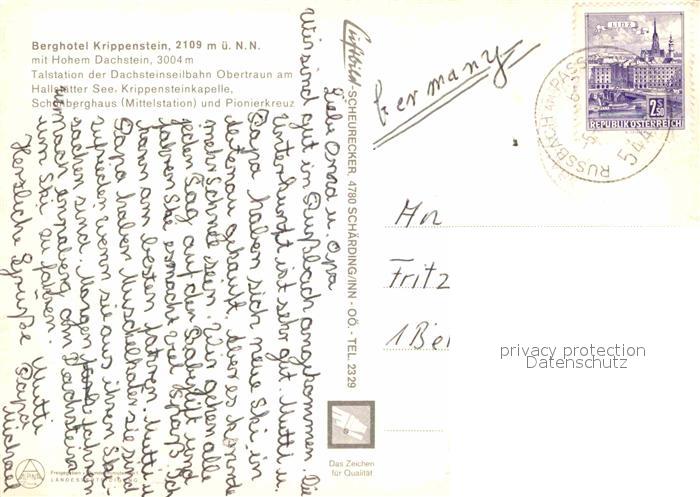 Berghotel Krippenstein, 2109 m ü. N. N.
mit Hohem Dachstein, 3004 m
Talstation der Dachsteinseilbahn Obertraun am
Hallstätter See. Krippensteinkapelle,
Schönberghaus (Mittelstation) und Pionierkreuz
Liebe Oma u. Opa
Wir sind gut in Rußbach angekommen. Die
Unterkunft ist sehr gut. Mutti u.
Papa haben sich neue Ski in
gekauft. Aber es könnte
mehr Schnee sein. Wir gehen alle
jeden Tag auf den Babylift und
fahren Ski es macht viel Spaß. Ich
kann am besten fahren. Mutti u.
Papa haben Muskelkater sie sind
zufrieden wenn sie aus ihren Ski-
sachen sind. Morgen fahren
wir nach Annaberg am Dachstein
um Ski zu fahren.
Herzliche Grüße Mutti
Papa
Michael
Luftbild-SCHEURECKER, 4780 SCHÄRDING/INN - OÖ. - TEL. 23 29
Germany
LINZ
2.50
REPUBLIK ÖSTERREICH
RUSSBACH AM PASS
Fritz
1 Ber
privacy protection
Datenschutz
Das Zeichen
für Qualität
ALPINE
Freigegeben
LANDESVERTEIDIGUNG